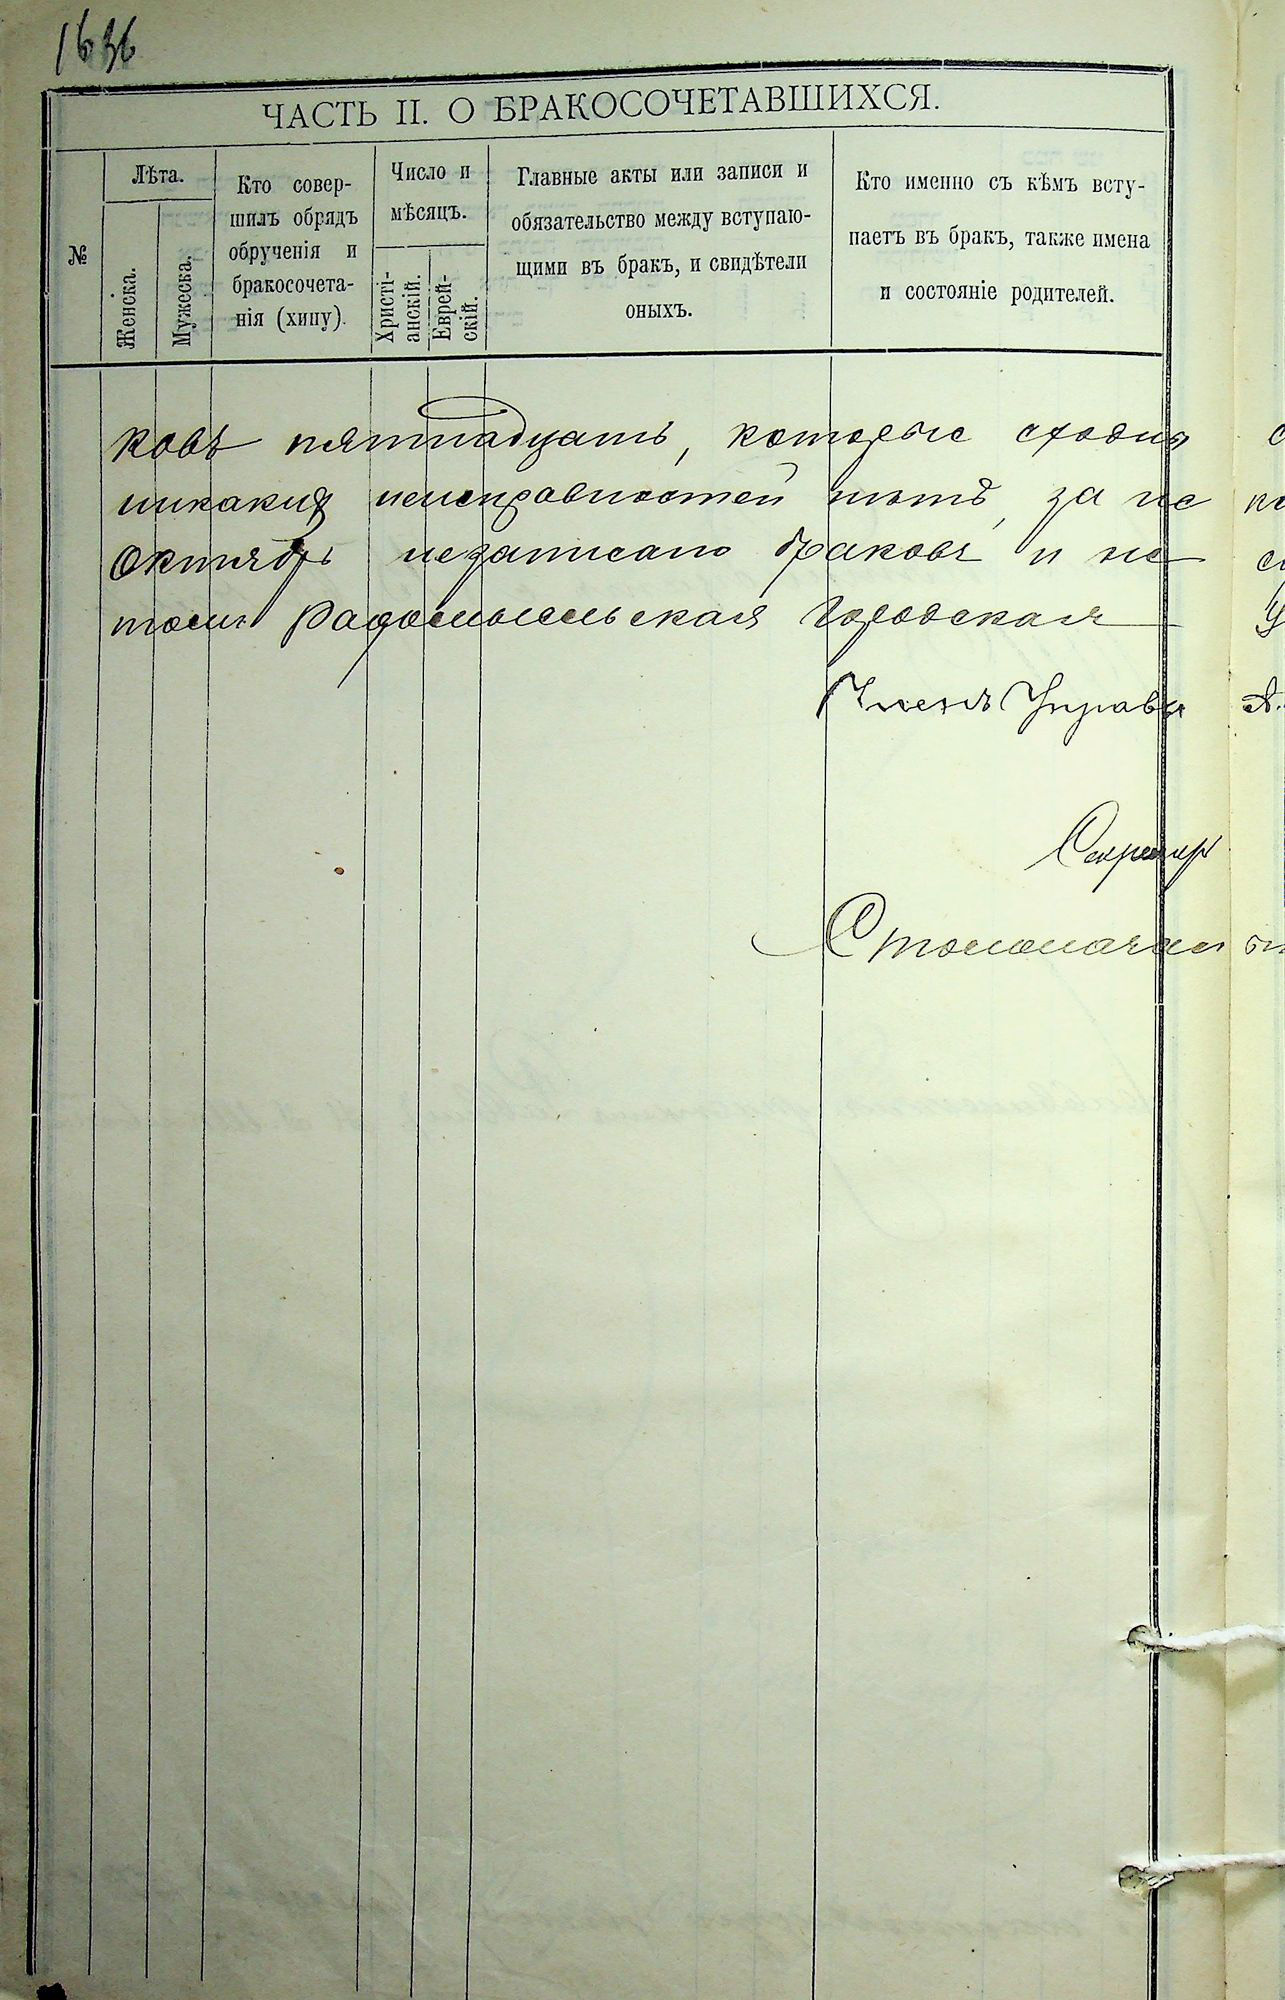 1636
ЧАСТЬ II. О БРАКОСОЧЕТАВШИХСЯ.
№
Лѣта.
Женска.
Мужеска.
Кто совер-
шилъ обрядъ
обрученія и
бракосочета-
нія (хипу).
Число и
мѣсяцъ.
Христі-
анскій.
Еврей-
скій.
Главные акты или записи и
обязательство между вступаю-
щими въ бракъ, и свидѣтели
оныхъ.
Кто именно съ кѣмъ всту-
паетъ въ бракъ, также имена
и состояніе родителей.
ковъ пятнадцать, которые сходны
никакихъ неисправностей нѣтъ, за ис
Октябрь незаписано браковъ и не
томъ Радомысльская Городская
Членъ Управы А.
Секретарь
Столоначальн